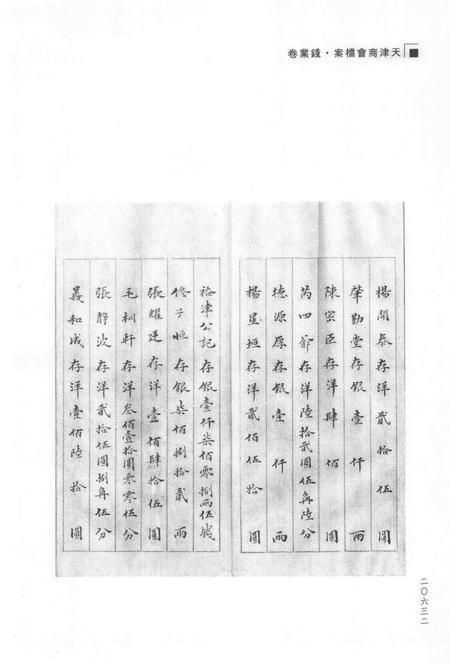 天津商會檔案·錢業卷
楊開泰存洋貳拾伍圓
肇勤堂存銀壹仟兩
陳宏臣存洋肆佰圓
芮四爺存洋陸拾貳圓伍角陸分
德源厚存銀壹仟兩
楊星垣存洋貳佰伍拾圓
裕津公記存銀壹仟柒佰零捌兩伍錢
佟子恒存銀柒佰捌拾貳兩
張耀廷存洋壹佰肆拾伍圓
毛桐軒存洋叁佰壹拾圓零零伍分
張靜波存洋貳拾伍圓捌角伍分
義和成存洋壹佰陸拾圓
二〇六三二